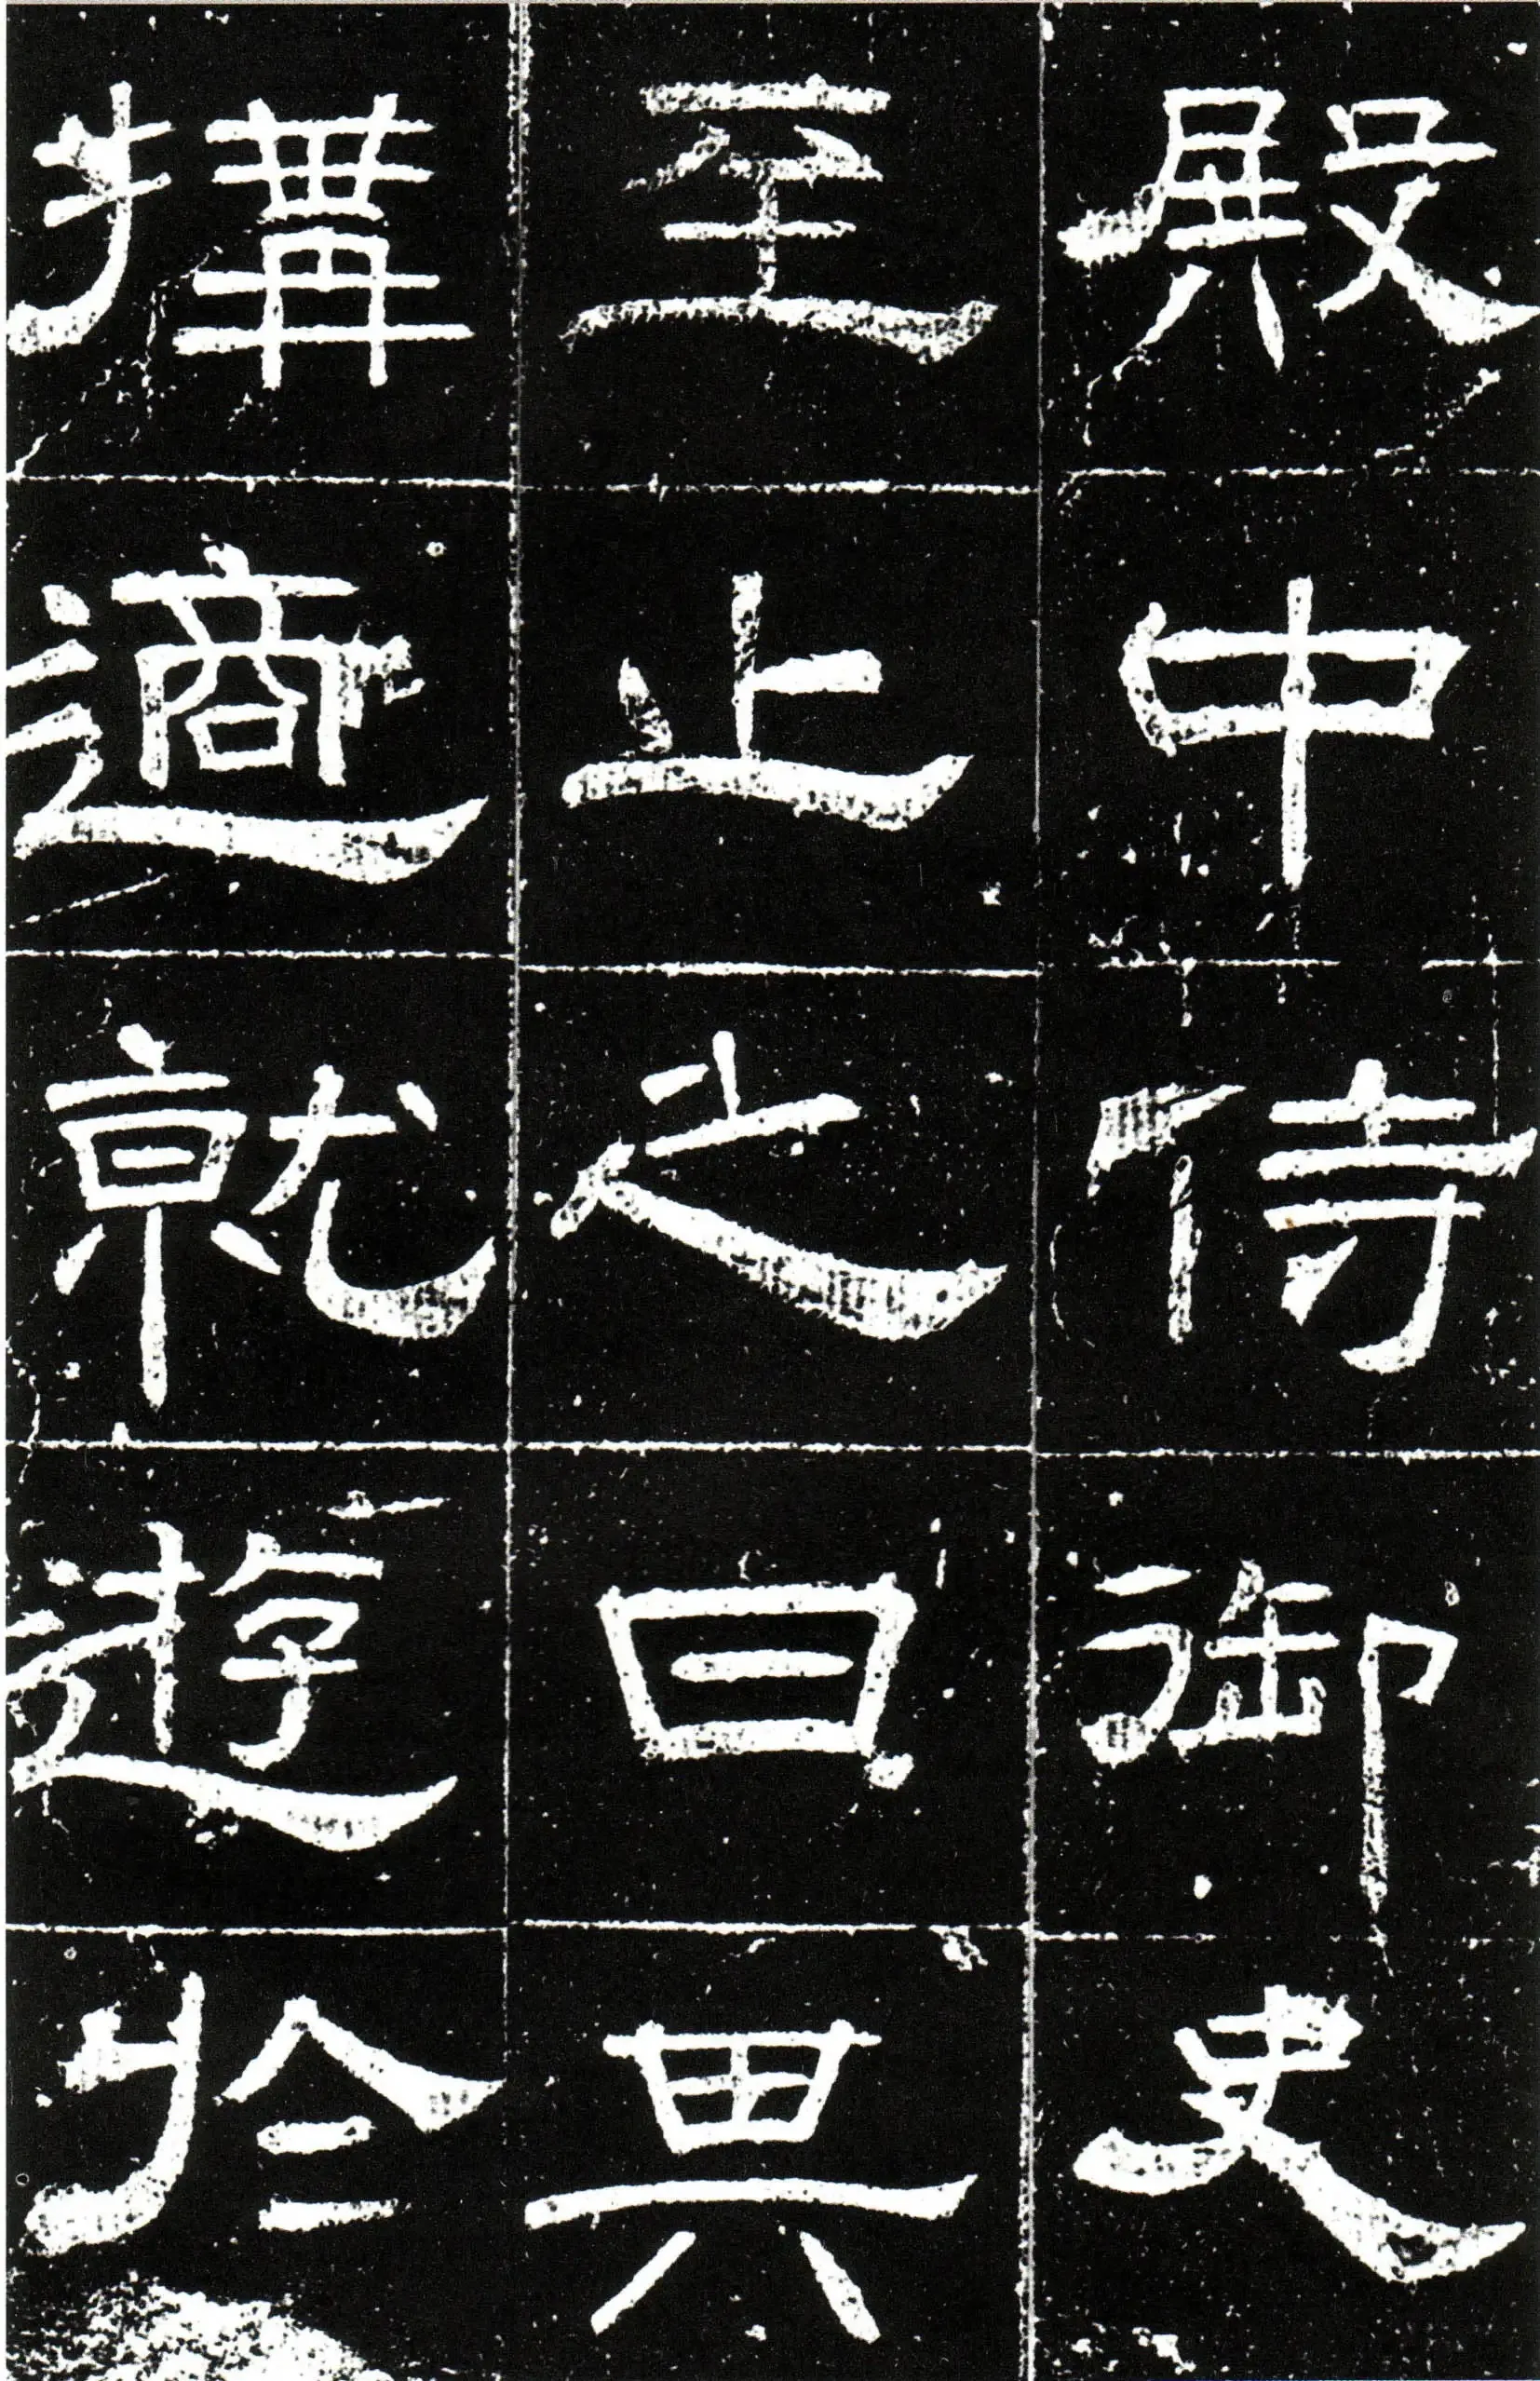 殿中侍御史
至止之日其
搆適就遊於